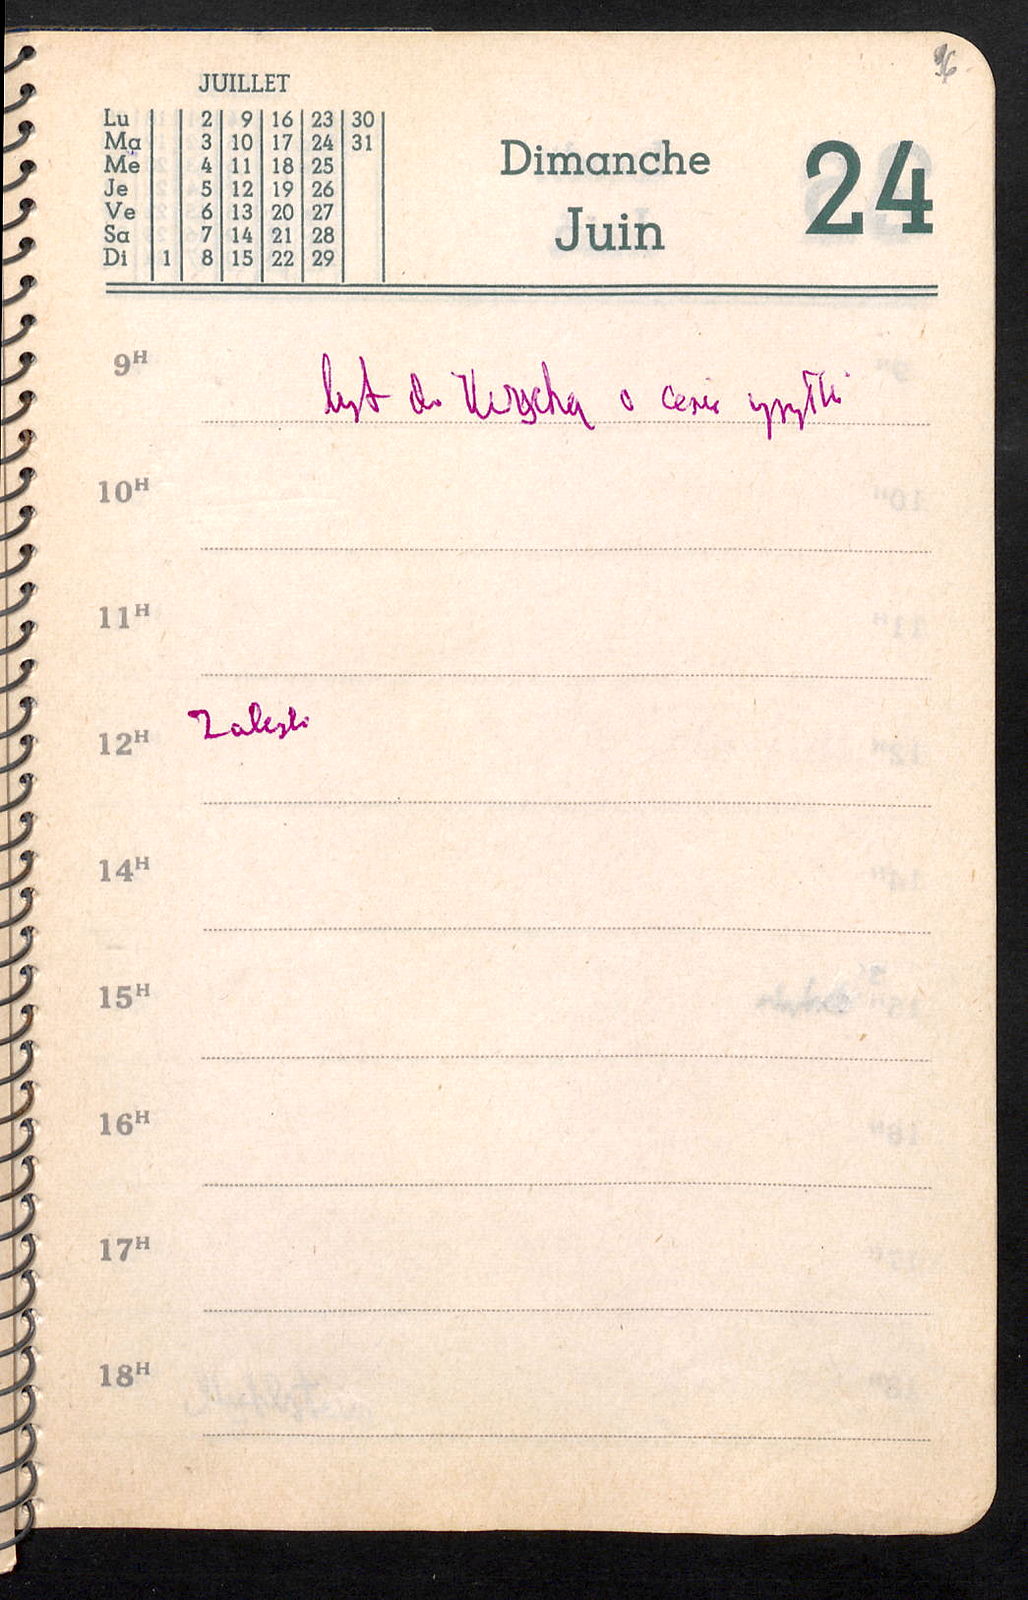 96
JUILLET
Lu 2 9 16 23 30
Ma 3 10 17 24 31
Me 4 11 18 25
Je 5 12 19 26
Ve 6 13 20 27
Sa 7 14 21 28
Di 1 8 15 22 29
Dimanche 24
Juin
9H
list do o cenie wysyłki
10H
11H
Zaleski
12H
14H
15H
16H
17H
18H